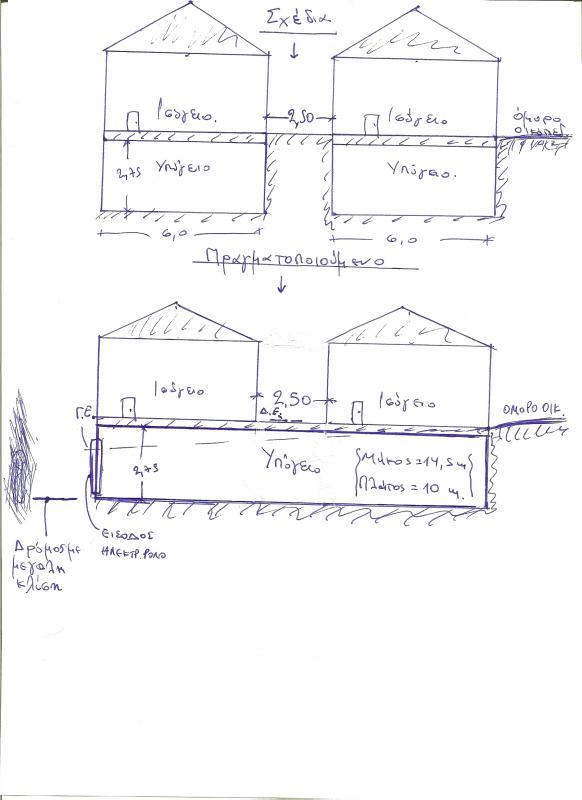 Σχέδια
Ισόγειο.
2,50
Ισόγειο
όμορο
2,75
Υπόγειο
Υπόγειο.
6,0
6,0
Πραγματοποιούμενο
Ισόγειο
2,50
Ισόγειο
Γ.Ε.
Δ.Ε.
ΟΜΟΡΟ ΟΙΚ.
2,75
Υπόγειο
Μήκος=14,5m
Πλάτος=10 m.
ΕΙΣΟΔΟΣ
ΗΛΕΚΤΡ.ΡΟΛΟ
Δρόμος με
μεγάλη
κλίση